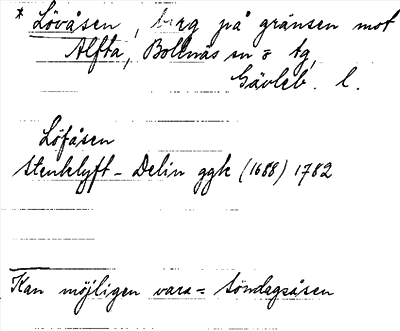 * Lövåsen, berg på gränsen mot
Alfta, Bollnäs sn o tg,
Gävleb. l.
Löfåsen
Stenklyft - Delin ggk (1688) 1782
Kan möjligen vara = Söndagsåsen